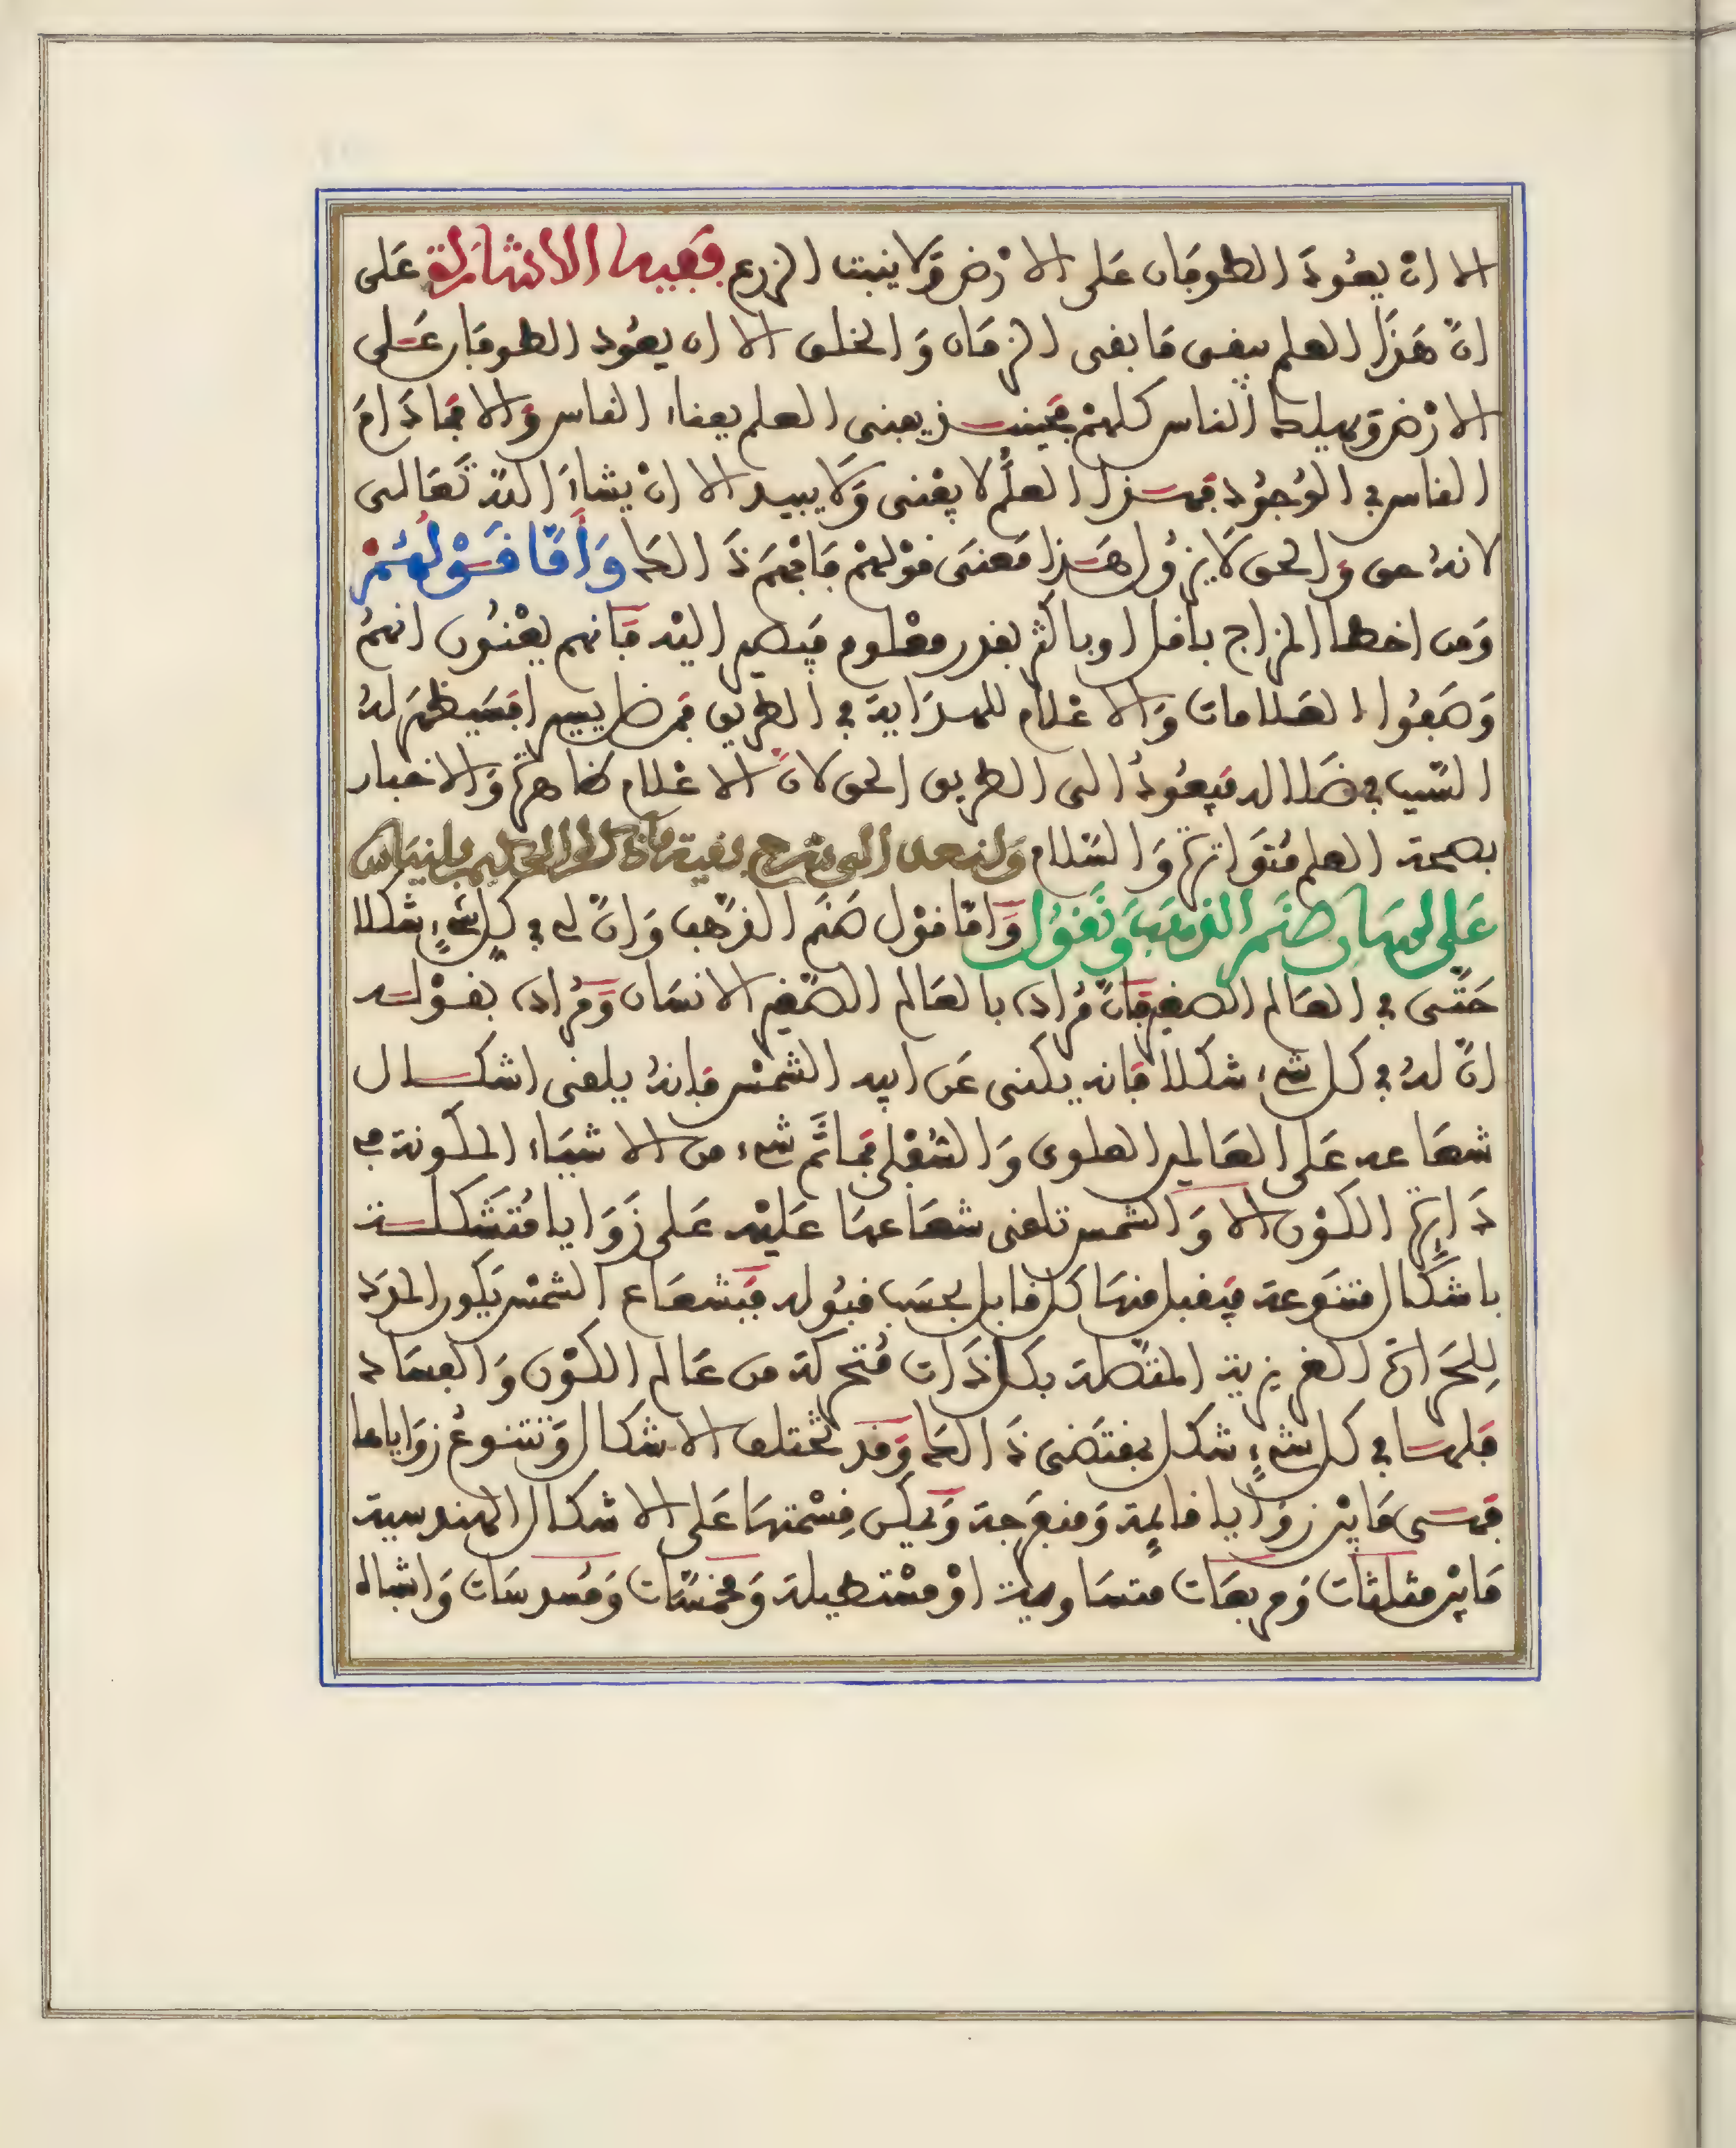 الا ان يعُودَ الطوفان على الارْض وَلا ينبت الزرع ففيها الاشارة عَلى
انّ هَذَا العلم يبقى مَا بقى الزمَان وَالخلق الا ان يعُود الطوفان عَلى
الارْض وَيهلك الناس كلهمْ فحينئذ يعنى العلم بفناء الناس وَالا فمَا دَامَ
الناس فى الوُجُود فهذا العلمُ لا يفْنى وَلا يبيد الا انْ يشاءَ اللهُ تَعَالى
لانهُ حق وَالحق لَا يزُول هَذا مَعنَى قوْلهمْ فَافهَمْ ذَالك وَأمّا قَوْلُهُمْ
وَمن اخطا المزاج باقل او باكثر بقدر معْلوم فيصير اليْه فانهم يعْنُون انهمُ
وَضعُوا العَلامات وَالاعْلَام للهدَاية فى الطريق فمن ضل يسيرا فسَيظهَر لهُ
السّيب فى ضَلاله فيعُودُ الى الطريق الحق لانّ الاعْلام ظاهرة وَالاخبار
بصحة العلم مُتوَاترة وَالسّلام وَلنعد الى شرح بقية مَا ذكره الحكيم بلنياس
عَلى لسَان صنَم الذهَب وَنَقُول وَامّا قوْل صَنَم الذهَب وَانّ لى فى كل شىءٍ شكلا
حَتّى فى العَالم الصغير فانّ مُراده بالعَالم الصّغير الانسَان وَمُراده بقوْله
انّ لهُ فى كل شىء شكلا فانه يكنى عَن ابيه الشمْس فانهُ يلقى اشكال
شعَاعه عَلى العَالمين العلوى وَالسُّفْلى فمَا ثَمّ شىء من الاشيَاء المكونة فى
دَائرة الكوْن الا وَالشمس تلقى شعَاعهَا عَليْه عَلى زَوَايا مُتَشَكلة
باشكَال متنَوعة فيَقبل منهَا كل قابل بحسَب قبُوله فبشعَاع الشمْس يَكون المَدَد
لِلحَرَارة الغريزية المتصّلة بكل ذَات مُتحركة من عَالم الكوْن وَالفسَاد
فلهَا فى كل شىءٍ شكل بمقتَضى ذَالك وَقد تختلف الاشكال وَتتنوعُ زوَاياها
فهى مَا بيْن زوَايا قائمة وَمنفرجة وَيمكن قِسْمتهَا عَلى الاشكال الهندسية
مَا بيْن مثلثات وَمربعَات متسَاوية اوْ مسْتطيلة وَمخمسَّات وَمُسدسَات وَاشباه